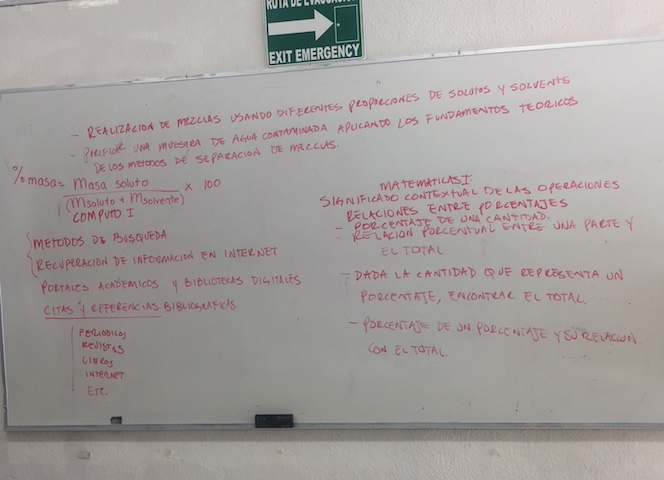 RUTA DE EVACUACION
EXIT EMERGENCY
- REALIZACION DE MEZCLAS USANDO DIFERENTES PROPORCIONES DE SOLUTOS Y SOLVENTE
- PURIFICAR UNA MUESTRA DE AGUA CONTAMINADA APLICANDO LOS FUNDAMENTOS TEORICOS
DE LOS METODOS DE SEPARACION DE MEZCLAS.
% masa = Masa soluto / (Msoluto + Msolvente) x 100
COMPUTO I
METODOS DE BUSQUEDA
RECUPERACION DE INFORMACION EN INTERNET
PORTALES ACADÉMICOS Y BIBLIOTECAS DIGITALES
CITAS Y REFERENCIAS BIBLIOGRAFICAS
PERIODICOS
REVISTAS
LIBROS
INTERNET
ETC.
MATEMATICAS I.
SIGNIFICADO CONTEXTUAL DE LAS OPERACIONES
RELACIONES ENTRE PORCENTAJES
- PORCENTAJE DE UNA CANTIDAD.
- RELACION PORCENTUAL ENTRE UNA PARTE Y
EL TOTAL
- DADA LA CANTIDAD QUE REPRESENTA UN
PORCENTAJE, ENCONTRAR EL TOTAL.
- PORCENTAJE DE UN PORCENTAJE Y SU RELACION
CON EL TOTAL.